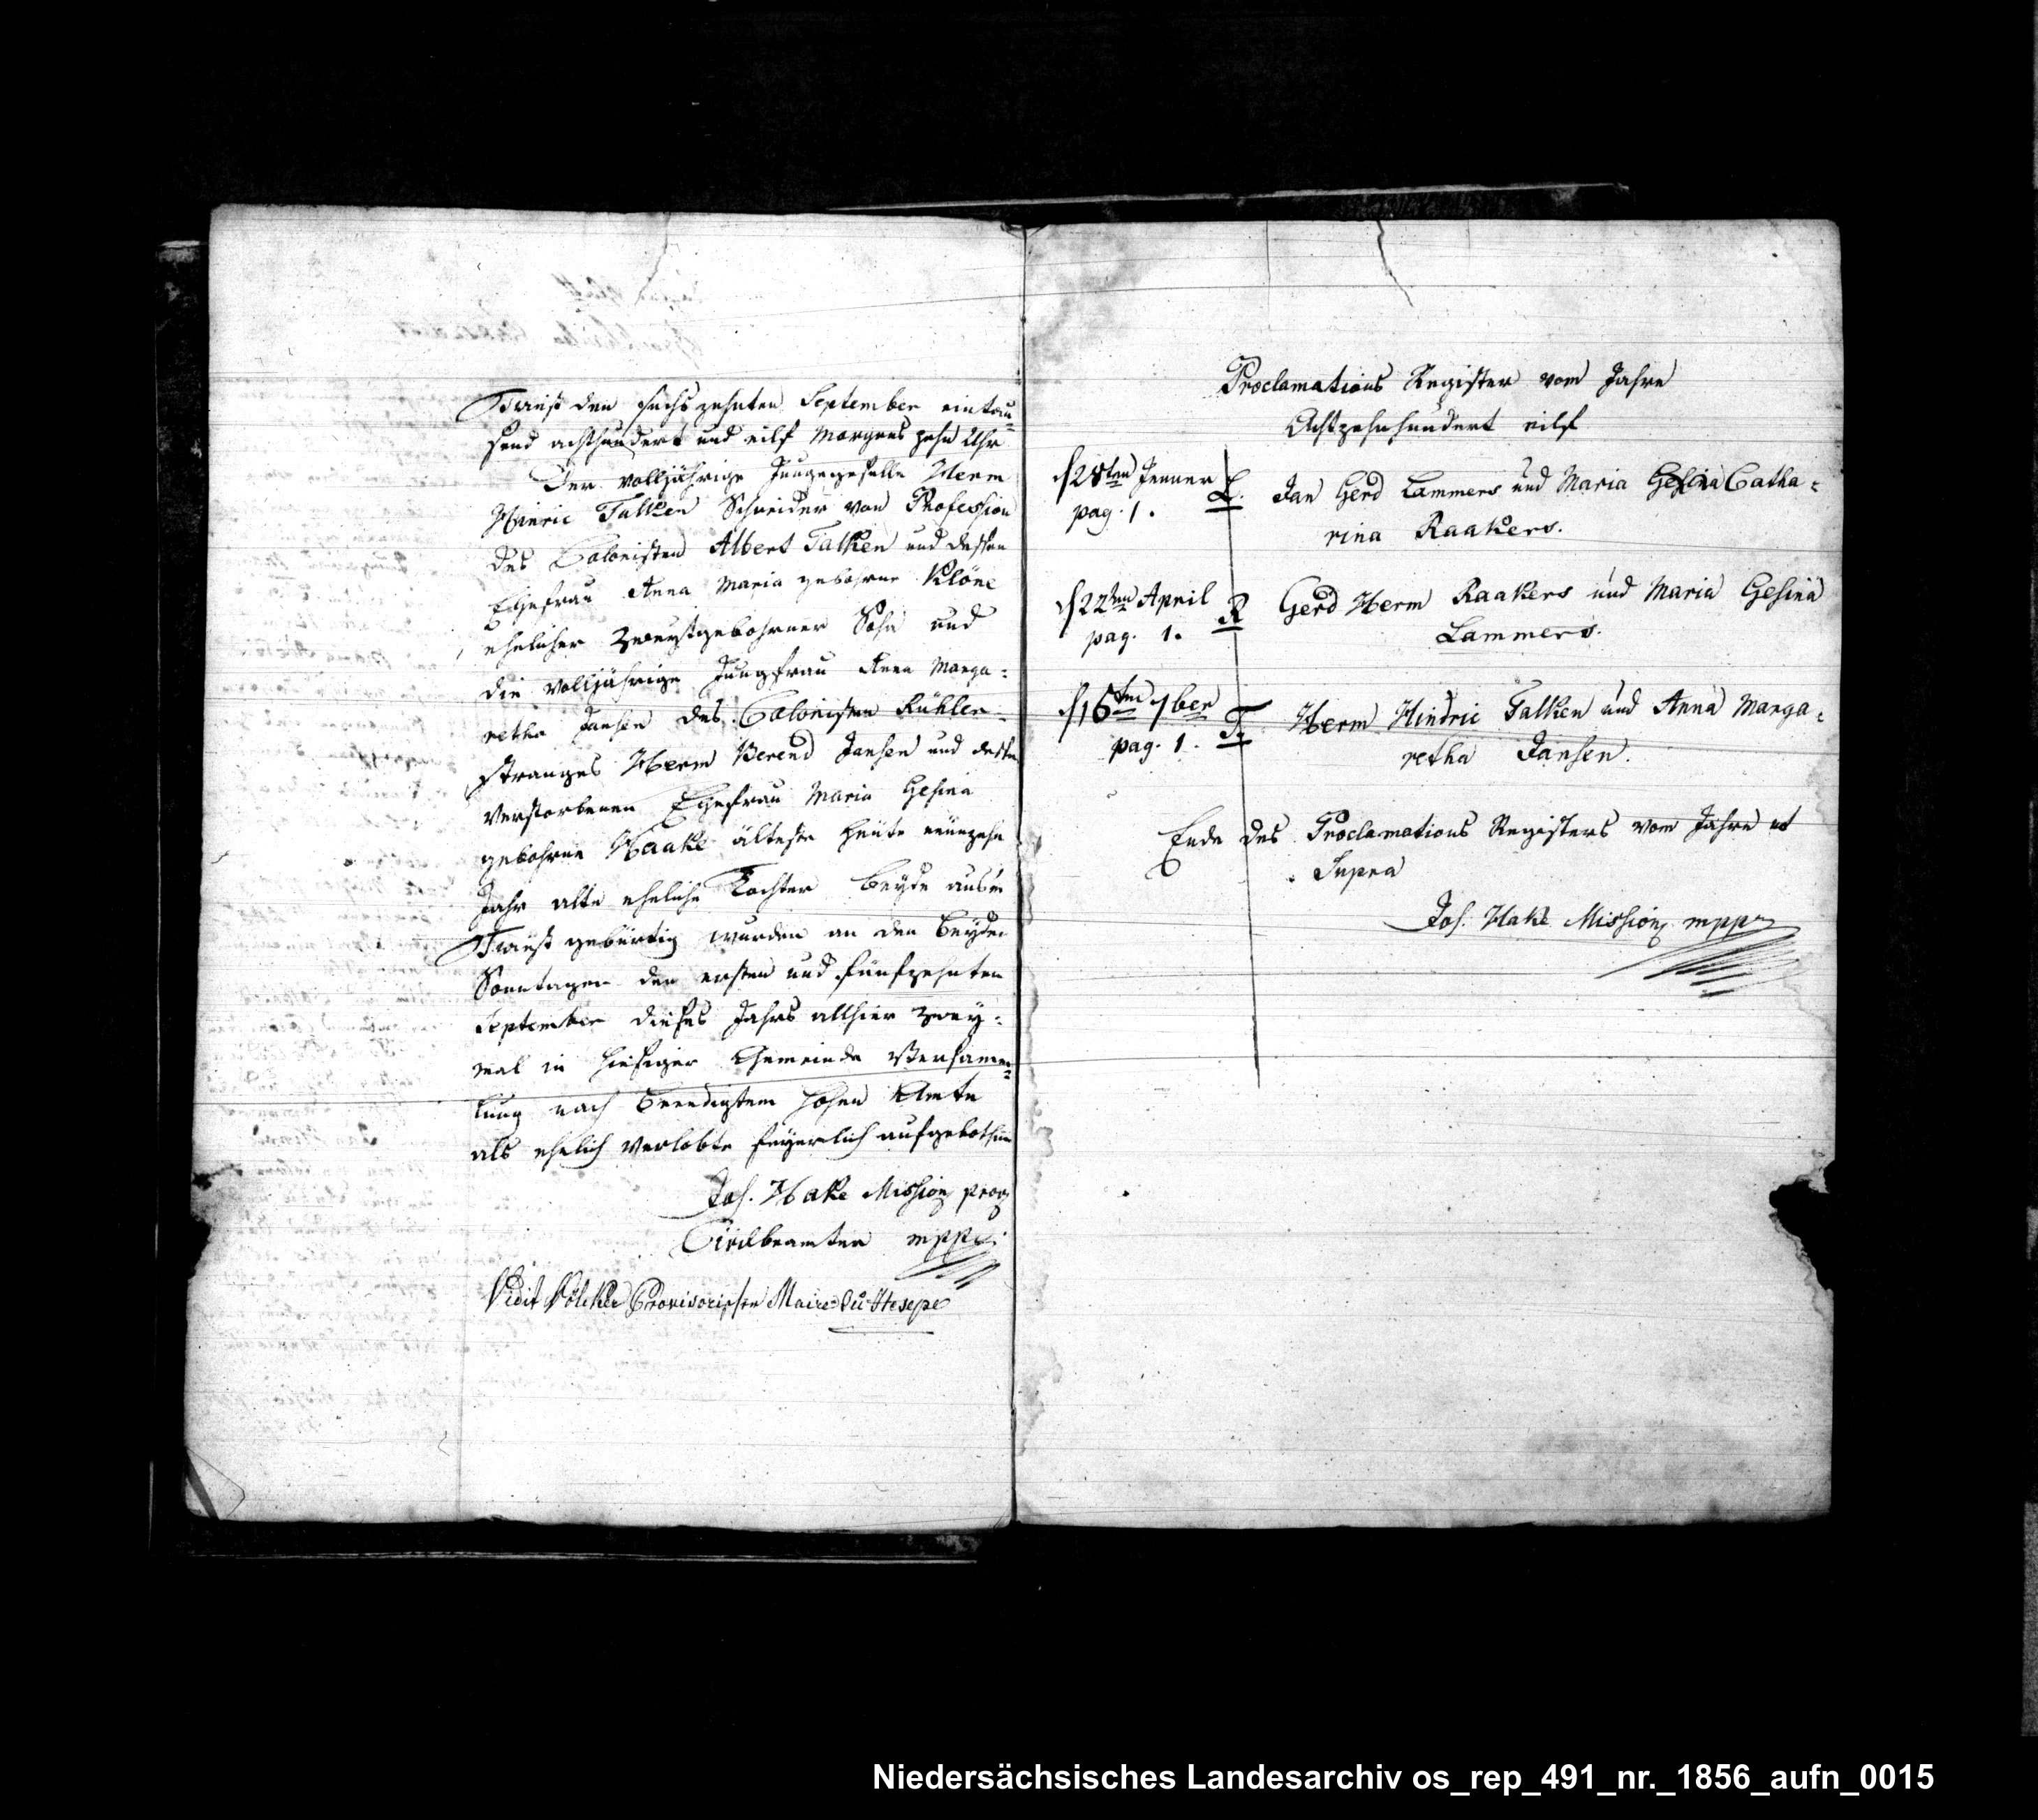 Twist den sechszehnten September eintau=
send achthundert und eilf Morgens zehn Uhr
Der volljährige Junggeselle Herm
Hinric Talken Schneider von Profession
des Colonisten Albert Talken und dessen
Ehefrau Anna Maria gebohrne Klöne
ehelicher zweytgebohrner Sohn und
die volljährige Jungfrau Anna Marga=
retha Jansen des Colonisten Rühler=
stranges Herm Berend Jansen und dessen
verstorbenen Ehefrau Maria Gesina
gebohrne Haake älteste heute neunzehn
Jahr alte eheliche Tochter beyde aus'm
Twist gebürtig wurden an den beyden
Sonntagen den ersten und fünfzehnten
September dieses Jahrs allhier zwey=
mal in hiesiger Gemeinde Versamm=
lung nach beendigtem hohen Amte
als ehelich Verlobte feyerlich aufgebothen
Jos. Hake Mission
Civilbeamter mppr
Vidit Völcker Provisorischer Maire zu Hesepe
Proclamations Register vom Jahre
Achtzehnhundert eilf
d 28ten Jenner L. Jan Gerd Lammers und Maria Gesina Catha=
pag. 1. rina Raakers.
d 22ten April R Gerd Herm Raakers und Maria Gesina
pag. 1. Lammers.
d 16ten 7ber T. Herm Hindric Talken und Anna Marga=
pag. 1. retha Jansen.
Ende des Proclamations Registers vom Jahre ut
Supra
Jos. Hake Mission mppr
Niedersächsisches Landesarchiv os_rep_491_nr._1856_aufn_0015